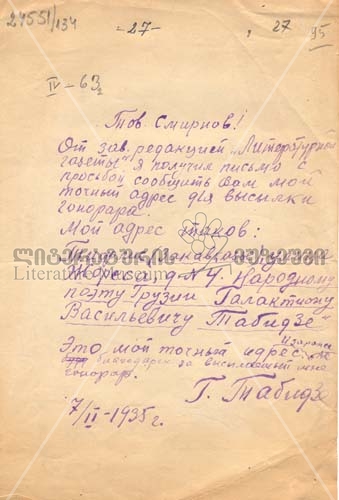 24551/134
-27-
27
95
IV-63₂
Тов. Смирнов!
От зав. редакцией „Литературной
газеты" я получил письмо с
просьбой сообщить Вам мой
точный адрес для высылки
гонорара.
Мой адрес таков:
ლიტერატურის მუზეუმი
Literature Museum
д N4. Народному
поэту Грузии Галактиону
Васильевичу Табидзе"
Это мой точный адрес.
благодарен за высланный мне
гонорар.
Г. Табидзе
7/II-1935 г.